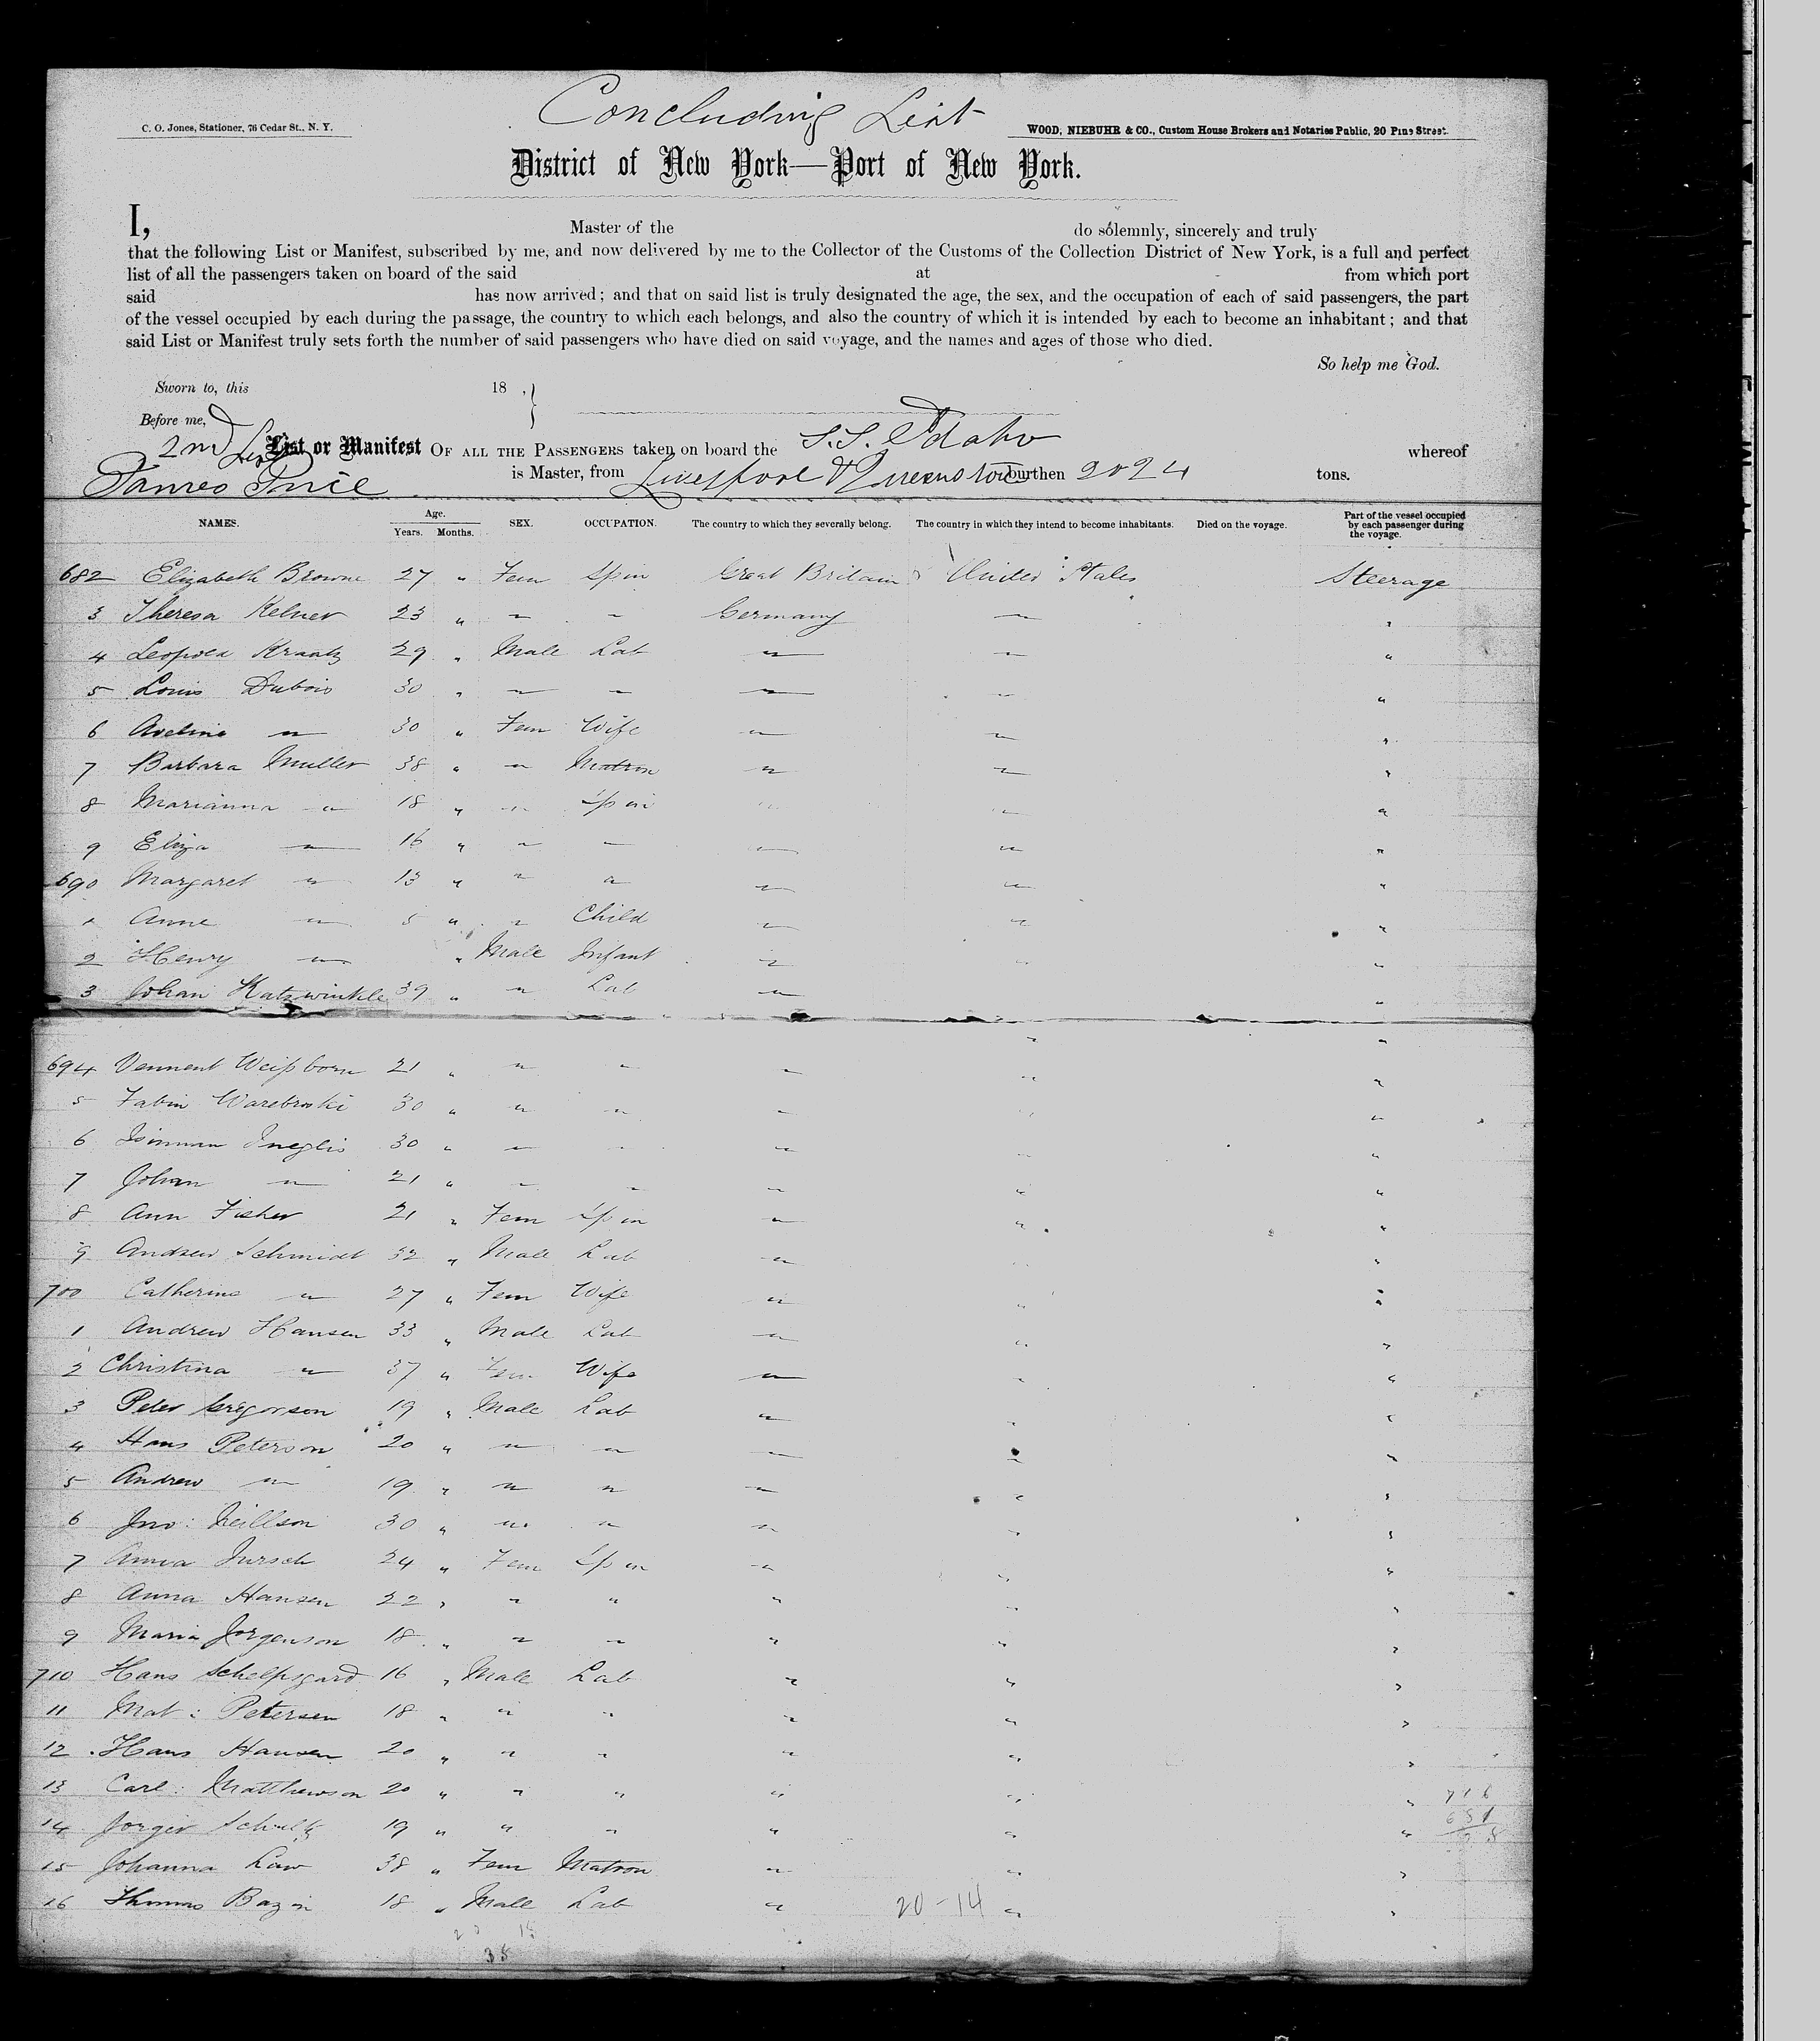 Concluding List
C. O. Jones, Stationer, 76 Cedar St., N. Y.
WOOD, NIEBUHR & CO., Custom House Brokers and Notaries Public, 20 Pine Street.
District of New York—Port of New York.
I, Master of the do solemnly, sincerely and truly
that the following List or Manifest, subscribed by me, and now delivered by me to the Collector of the Customs of the Collection District of New York, is a full and perfect
list of all the passengers taken on board of the said at from which port
said has now arrived; and that on said list is truly designated the age, the sex, and the occupation of each of said passengers, the part
of the vessel occupied by each during the passage, the country to which each belongs, and also the country of which it is intended by each to become an inhabitant; and that
said List or Manifest truly sets forth the number of said passengers who have died on said voyage, and the names and ages of those who died.
So help me God.
Sworn to, this 18 ,
Before me,
2nd List
List or Manifest OF ALL THE PASSENGERS taken on board the S.S. Idaho whereof
James Price is Master, from Liverpool & Queenstown burthen 2024 tons.
NAMES. Age. Years. Months. SEX. OCCUPATION. The country to which they severally belong. The country in which they intend to become inhabitants. Died on the voyage. Part of the vessel occupied by each passenger during the voyage.
682 Elizabeth Browne 27 " Fem Spin Great Britain United States Steerage
3 Theresa Kelner 23 " " " Germany " "
4 Leopold Kraatz 29 " Male Lab " " "
5 Louis Dubois 30 " " " " " "
6 Aveline " 30 " Fem Wife " " "
7 Barbara Muller 38 " " Matron " " "
8 Marianna " 18 " " Spin " " "
9 Eliza " 16 " " " " " "
690 Margaret " 13 " " " " " "
1 Anne " 5 " " Child " " "
2 Henry " " Male Infant " " "
3 Johan Katzwinkle 39 " " Lab " " "
694 Vennent Weissborn 21 " " " " " "
5 Fabin Warebroski 30 " " " " " "
6 30 " " " " " "
7 Johan " 21 " " " " " "
8 Ann Fisher 21 " Fem Spin " " "
9 Andrew Schmidt 32 " Male Lab " " "
700 Catherine " 27 " Fem Wife " " "
1 Andrew Hansen 33 " Male Lab " " "
2 Christina " 37 " Fem Wife " " "
3 Peter Gregorson 19 " Male Lab " " "
4 Hans Peterson 20 " " " " " "
5 Andrew " 19 " " " " " "
6 Jno: Neillson 30 " " " " " "
7 Anna Jursch 24 " Fem Spin " " "
8 Anna Hansen 22 " " " " " "
9 Maria Jorgenson 18 " " " " " "
710 Hans Schelpsgard 16 " Male Lab " " "
11 Mat: Petersen 18 " " " " " "
12 Hans Hansen 20 " " " " " "
13 Carl: Matthewson 20 " " " " " "
14 Jorgen Schultz 19 " " " " " "
15 Johanna Law 38 " Fem Matron " " "
16 Thomas Bazin 18 " Male Lab " " "
716
681
20-14
38